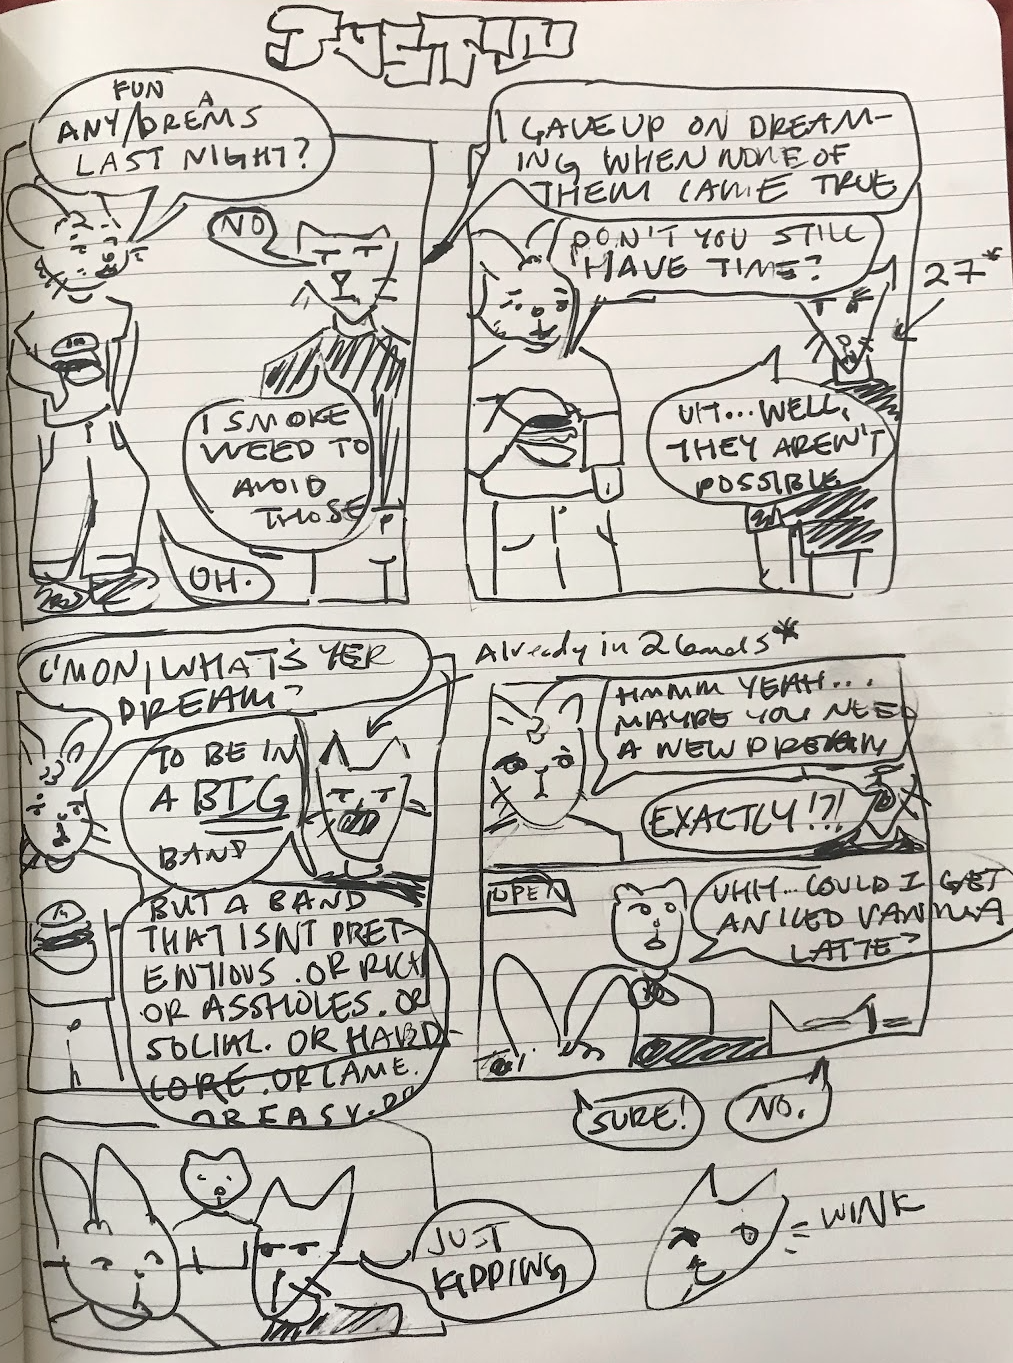 FUN
ANY/DREAMS
LAST NIGHT?
NO
I SMOKE
WEED TO
AVOID
THOSE
OH.
I GAVE UP ON DREAM-
ING WHEN NONE OF
THEM CAME TRUE
DON'T YOU STILL
HAVE TIME?
27*
UH...WELL,
THEY AREN'T
POSSIBLE
C'MON, WHAT'S YER
DREAM?
Already in 2 bands*
TO BE IN
A BIG
BAND
BUT A BAND
THAT ISNT PRET-
ENTIOUS. OR RICH
OR ASSHOLES. OR
SOCIAL. OR HARD-
CORE. OR LAME.
OR EASY. OR
HMMM YEAH...
MAYBE YOU NEED
A NEW DREAM
EXACTLY!?!
OPEN
UHH...COULD I GET
AN ICED VANILLA
LATTE?
SURE!
NO.
JUST
KIDDING
WINK